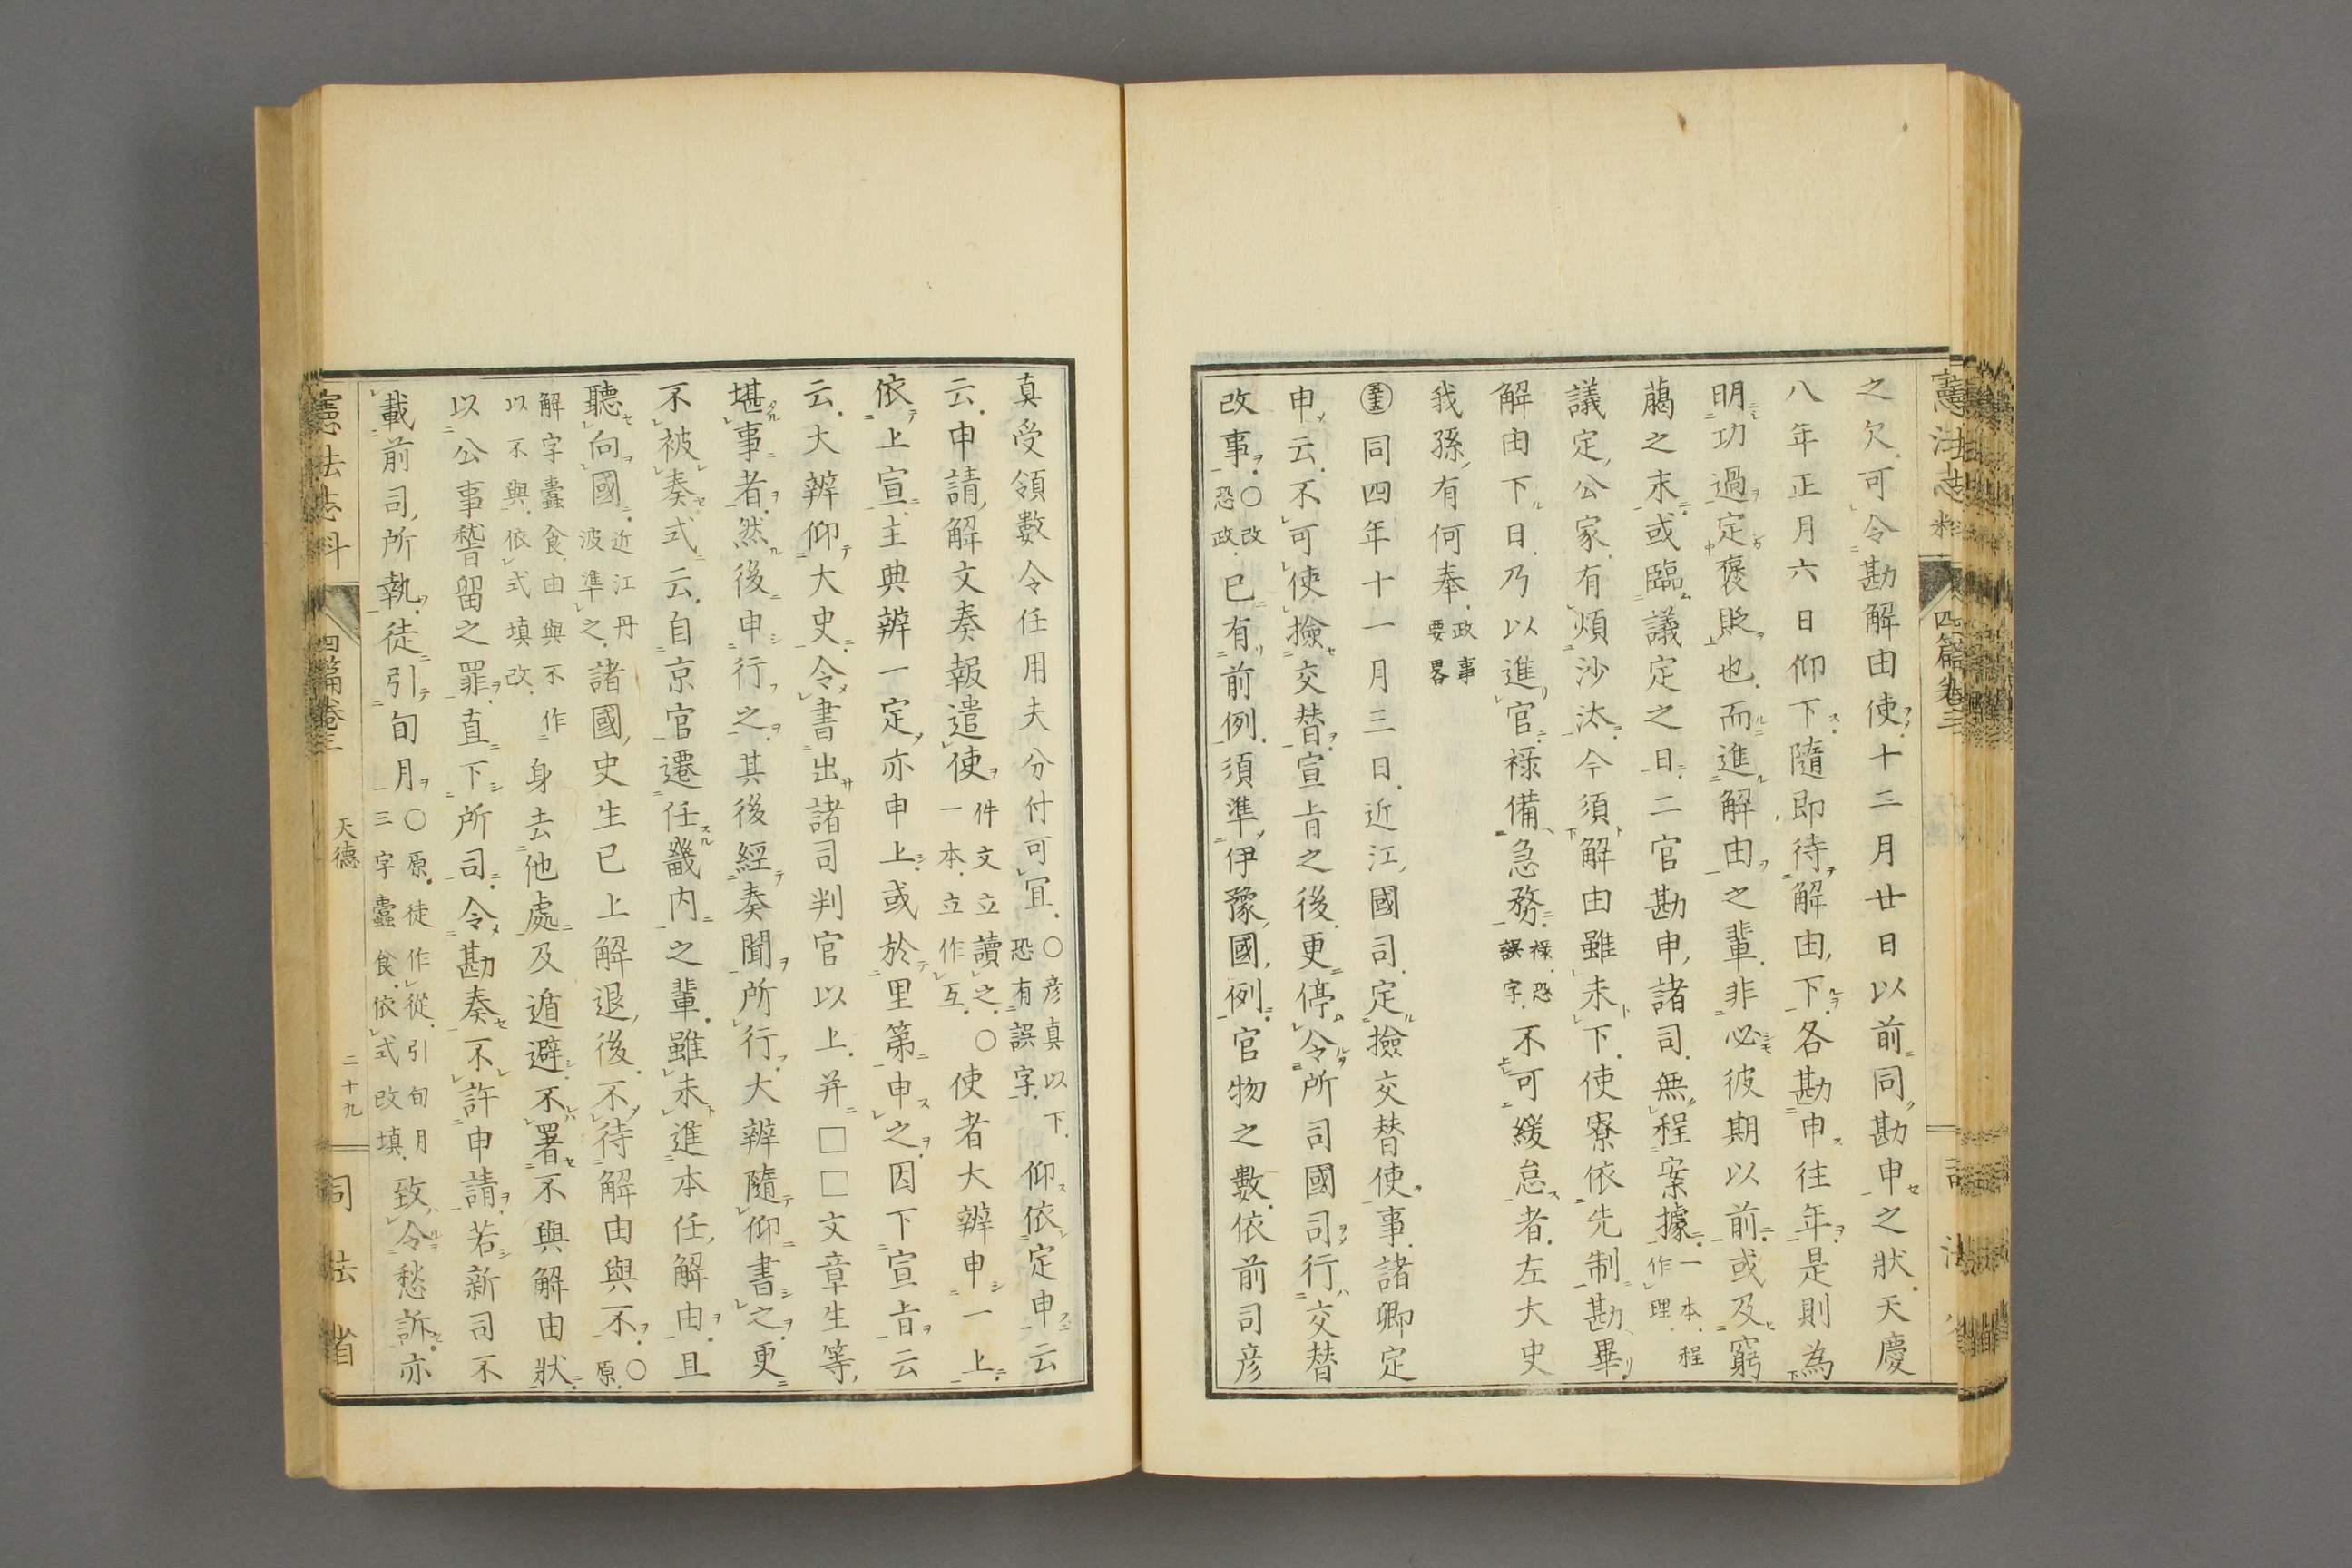 憲法志料 四篇卷三
之欠可令勘解由使十二月廿日以前同勘申之狀天慶
八年正月六日仰下隨即待解由下各勘申往年是則為
明功過定褒貶也而進解由之輩非必彼期以前或及窮
﨟之末或臨議定之日二官勘申諸司無程案據一本程作理
議定公家有煩沙汰今須解由雖未下使寮依先制勘畢
解由下日乃以進官祿備急務祿恐誤字不可緩怠者左大史
我孫有何奉政事要畧
同四年十一月三日近江國司定撿交替使事諸卿定
申云不可使撿交替宣旨之後更停令所司國司行交替
改事〇改恐政已有前例須準伊豫國例官物之數依前司彦
真受領數令任用夫分付可冝〇彦真以下恐有誤字仰依定申云
云申請解文奏報遣使件文立讀之〇一本立作互使者大辨申一上
依上宣主典辨一定亦申上或於里第申之因下宣旨云
云大辨仰大史令書出諸司判官以上并□□文章生等
堪事者然後申行之其後經奏聞所行大辨隨仰書之更
不被奏式云自京官遷任畿内之輩雖未進本任解由且
聽向國近江丹波準之諸國史生已上解退後不待解由與不〇原
解字蠧食由與不作以不與依式填改身去他處及遁避不署不與解由狀
以公事稽留之罪直下所司令勘奏不許申請若新司不
載前司所執徒引旬月〇原徒作從引旬月三字蠧食依式改填致令愁訴亦
憲法志料 四篇卷三 天德 二十九 司法省